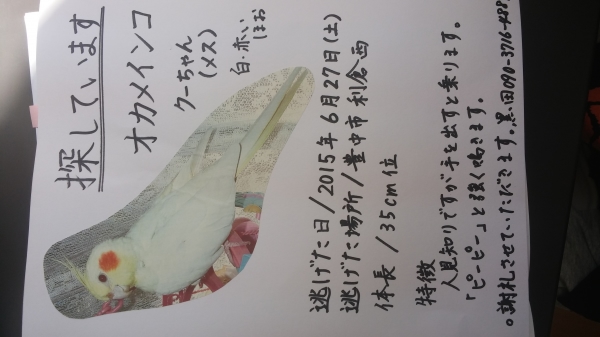 探しています
オカメインコ
クーちゃん
(メス)
白・赤い
ほお
逃げた日/2015年6月27日(土)
逃げた場所/豊中市利倉西
体長/35cm位
特徴
人見知りですが手を出すと乗ります。
「ピーピー」と強く鳴きます。
。謝礼させていただきます。黒田090-3716-488